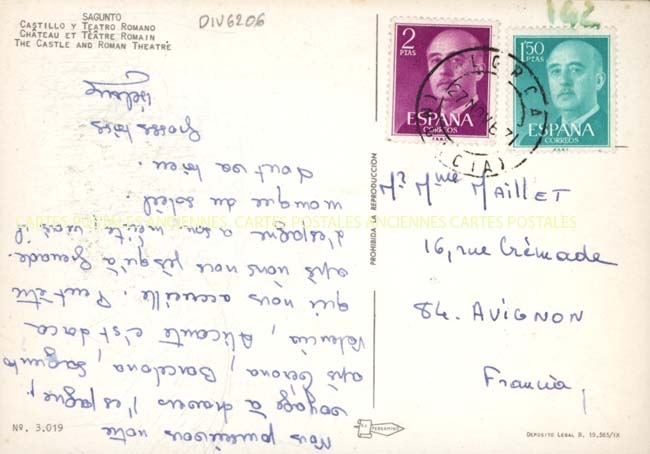 SAGUNTO
CASTILLO Y TEATRO ROMANO
CHÂTEAU ET TÉÂTRE ROMAIN
THE CASTLE AND ROMAN THEATRE
DIV6206
162
2
PTAS
ESPAÑA
CORREOS
1'50
PTAS
ESPAÑA
CORREOS
LORCA
PROHIBIDA LA REPRODUCCIÓN
Mr Mme MAILLET
16, rue Crémade
84. AVIGNON
Francia,
Nous poursuivons notre
voyage à travers l'espagne,
après Gerona, Barcelona, Sagunto
Valencia, Alicante c'est Lorca
qui nous accueille. Peut être
après irons nous jusqu'à Grenade.
d'espagne a son mérite, mais il
manque du soleil
tout va bien.
Grosses bises
CARTES POSTALES ANCIENNES CARTES POSTALES ANCIENNES CARTES POSTALES
Nº. 3.019
PERGAMINO
DEPOSITO LEGAL B. 19.565/IX